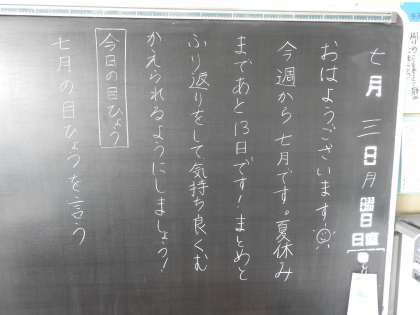 七月三日月曜日
日直
おはようございます
今週から七月です。夏休み
まであと13日です！まとめと
ふり返りをして気持ち良くむ
かえられるようにしましょう！
今日の目ひょう
七月の目ひょうを言う